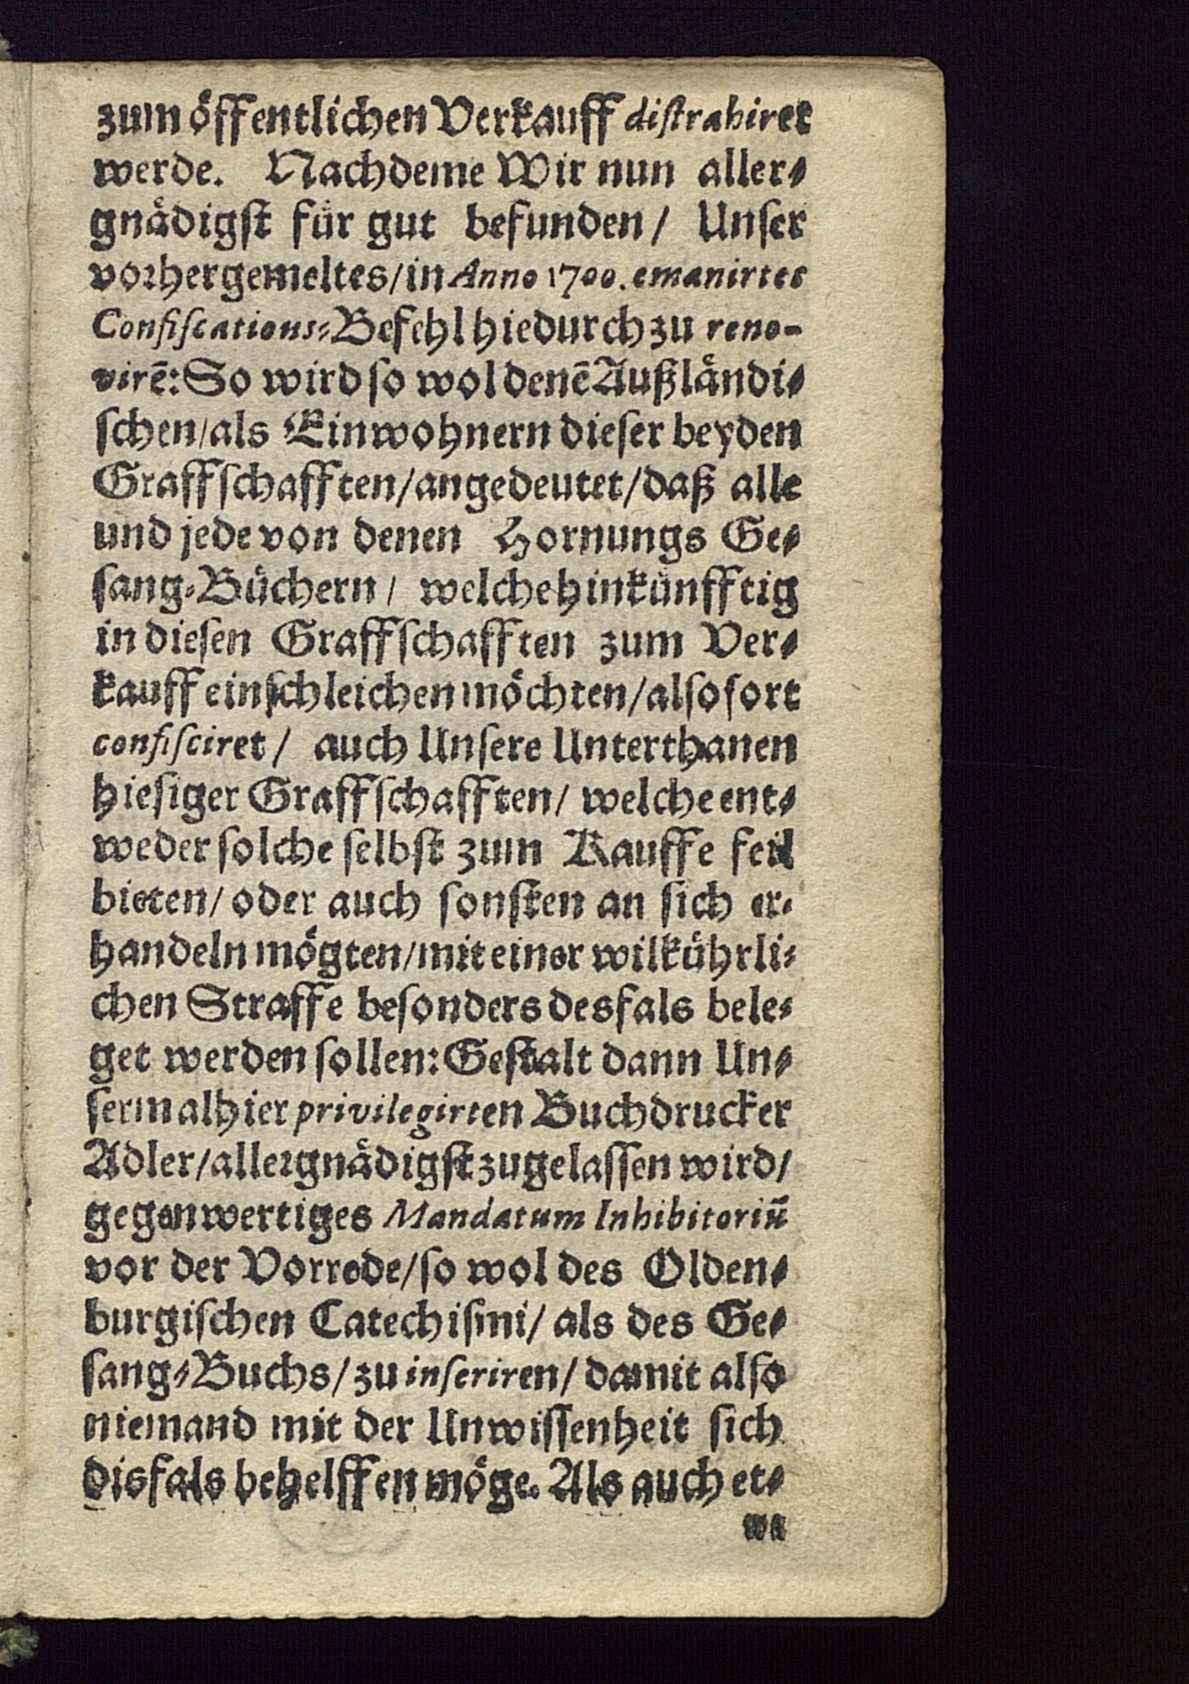 zum öffentlichen Verkauff distrahiret
werde. Nachdeme Wir nun aller⸗
gnädigst für gut befunden/ Unser
vorhergemeltes/in Anno 1700. emanirtes
Confiscations⸗Befehl hiedurch zu reno-
virē: So wird so wol denē Außländi⸗
schen/als Einwohnern dieser beyden
Graffschafften/angedeutet/daß alle
und jede von denen Hornungs Ge⸗
sang⸗Büchern/ welche hinkünfftig
in diesen Graffschafften zum Ver⸗
kauff einschleichen möchten/also fort
confisciret/ auch Unsere Unterthanen
hiesiger Graffschafften/ welche ent⸗
weder solche selbst zum Kauffe feil
bieten/ oder auch sonsten an sich er⸗
handeln mögten/mit einer wilkührli⸗
chen Straffe besonders desfals bele⸗
get werden sollen: Gestalt dann Un⸗
serm alhier privilegirten Buchdrucker
Adler/allergnädigst zugelassen wird/
gegenwertiges Mandatum Inhibitoriū
vor der Vorrede/so wol des Olden⸗
burgischen Catechismi/ als des Ge⸗
sang⸗Buchs/zu inseriren/ damit also
niemand mit der Unwissenheit sich
disfals behelffen möge. Als auch et⸗
wa